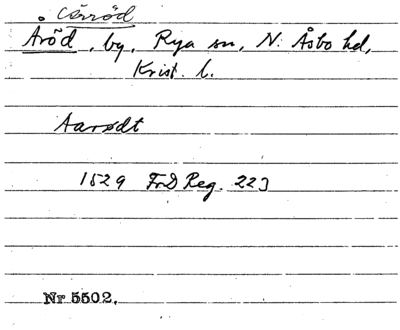 Åröd, by, Rya sn, N. Åsbo hd,
Krist. l.
Aarødt
1529 FrD Reg. 223
Nr 5502.